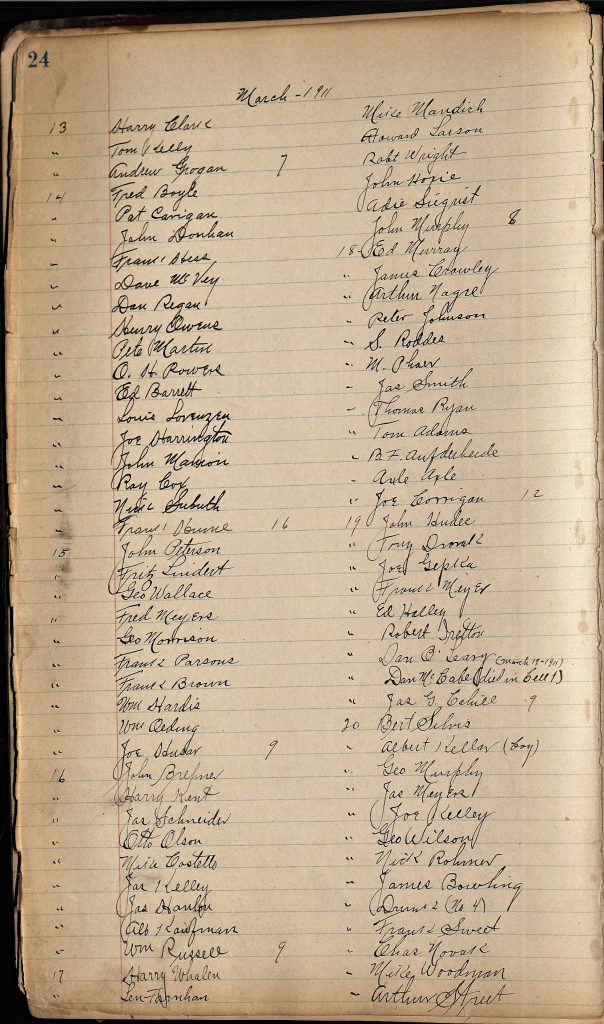 24
March - 1911
13 Harry Clark
" Tom Kelly
" Andrew Grogan 7
14 Fred Boyle
" Pat Carigan
" John Donhan
" Frank
" Dave McVey
" Dan Regan
" Henry Owens
" Pete Martin
" O. H. Powers
" Ed Barrett
" Louis Lorenzen
" Joe Harrington
" John Manion
" Ray Cox
" Nick
" Frank 16
15 John Peterson
" Fritz Lindert
" Geo Wallace
" Fred Meyers
" Geo Morrison
" Frank Parsons
" Frank Brown
" Wm Hardis
" Wm Oeding
" Joe Husar 9
16 John Brehner
" Harry Kent
" Jas Schneider
" Otto Olson
" Mike Costello
" Jas Kelley
" Jas Hanlon
" Alb Kaufman
" Wm Russell 9
17 Harry Whalen
" Len Farnhan
Mike Mandich
Howard Larson
Robt Wright
John
Adie Siegrist
John Murphy 8
18 - Ed Murray
" James Crowley
" Arthur Nagre
" Peter Johnson
" S. Roddes
" M.
" Jas Smith
" Thomas Ryan
" Tom Adams
" B. F. Aufderheide
" Axle Axle
" Joe Corrigan 12
19 John Hudec
" Tony
" Joe Gepka
" Frank Meyer
" Ed Halley
" Robert
" Dan O'Leary (March 19-1911)
" Dan McCabe (died in Cell 1)
" Jas G. Cahill 9
20 Bert Silvis
" Albert Kellar (Boy)
" Geo Murphy
" Jas Meyers
" Joe Kelley
" Geo Wilson
" Nick Rohmer
" James Bowling
" Drunk (No 4)
" Frank Sweet
" Chas Novak
" Mike Woodman
" Arthur Street